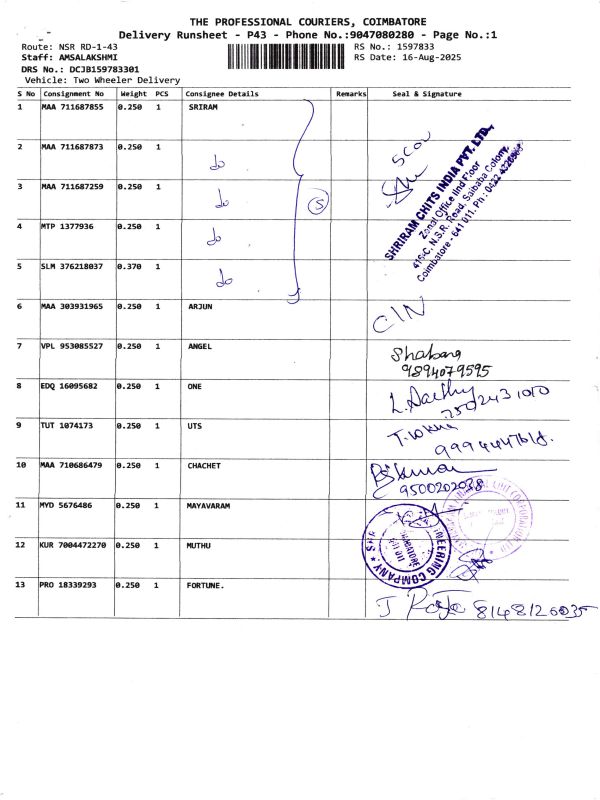 THE PROFESSIONAL COURIERS, COIMBATORE
Delivery Runsheet - P43 - Phone No.:9047080280 - Page No.:1
Route: NSR RD-1-43
RS No.: 1597833
Staff: AMSALAKSHMI
RS Date: 16-Aug-2025
DRS No.: DCJB159783301
Vehicle: Two Wheeler Delivery
S No Consignment No Weight PCS Consignee Details Remarks Seal & Signature
1 MAA 711687855 0.250 1 SRIRAM
2 MAA 711687873 0.250 1 do
3 MAA 711687259 0.250 1 do
4 MTP 1377936 0.250 1 do
5 SLM 376218037 0.370 1 do
5
SHRIRAM CHITS INDIA PVT. LTD.,
Zonal Office IInd Floor
419-C, N.S.R. Road, Saibaba Colony,
Coimbatore - 641 011. Ph : 0422
6 MAA 303931965 0.250 1 ARJUN
7 VPL 953085527 0.250 1 ANGEL
9894079595
8 EDQ 16095682 0.250 1 ONE
9 TUT 1074173 0.250 1 UTS
10 MAA 710686479 0.250 1 CHACHET
9500202038
11 MYD 5676486 0.250 1 MAYAVARAM
12 KUR 7004472270 0.250 1 MUTHU
13 PRO 18339293 0.250 1 FORTUNE.
8148126035